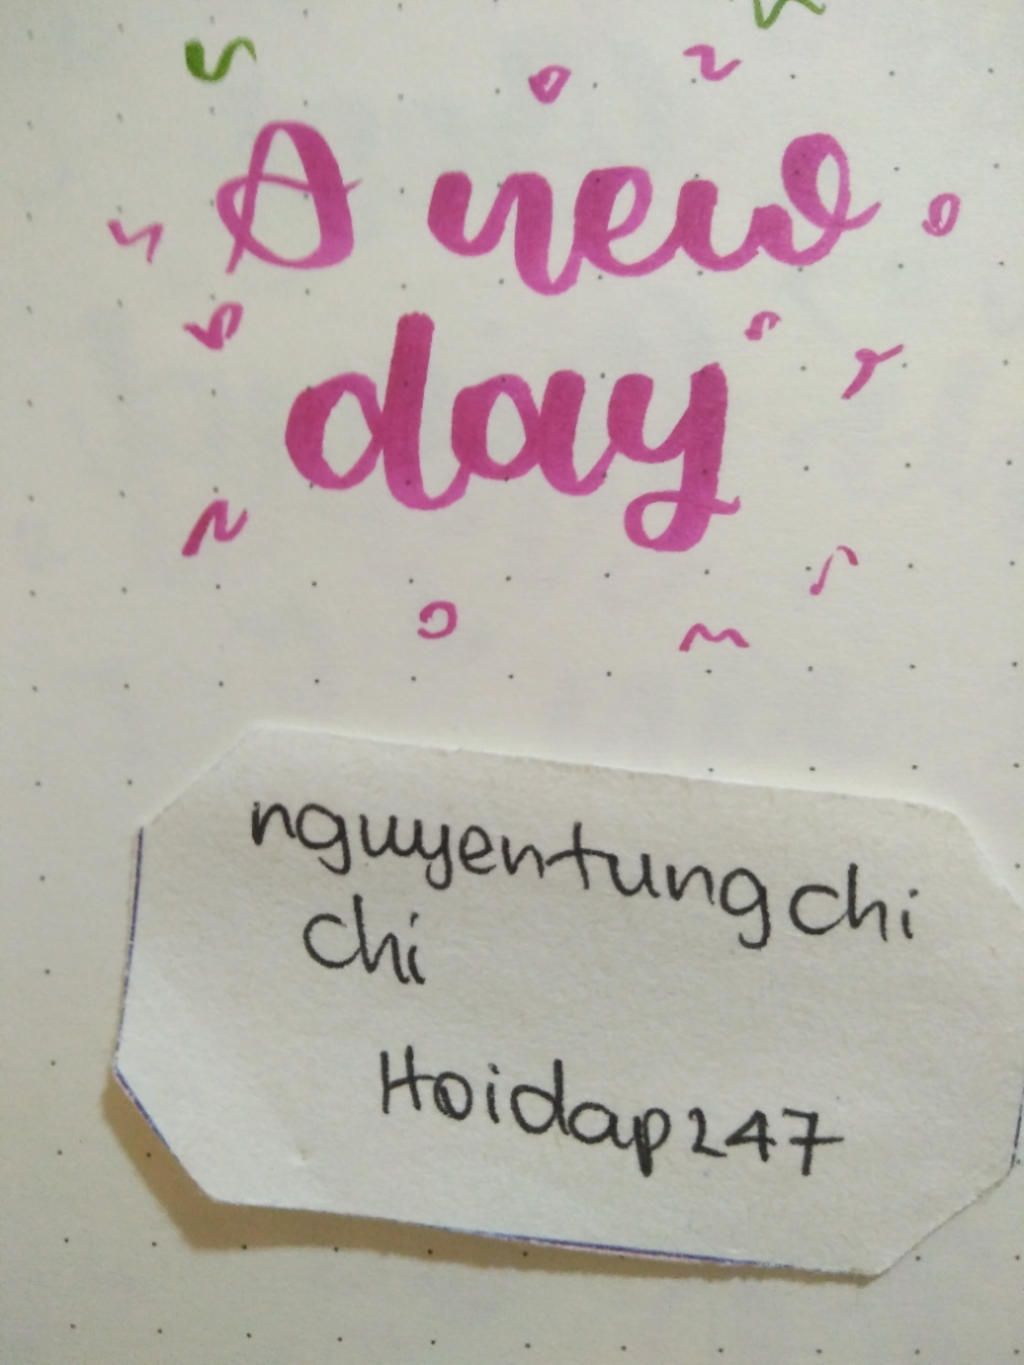 A new
day
nguyentungchi
chi
Hoidap247